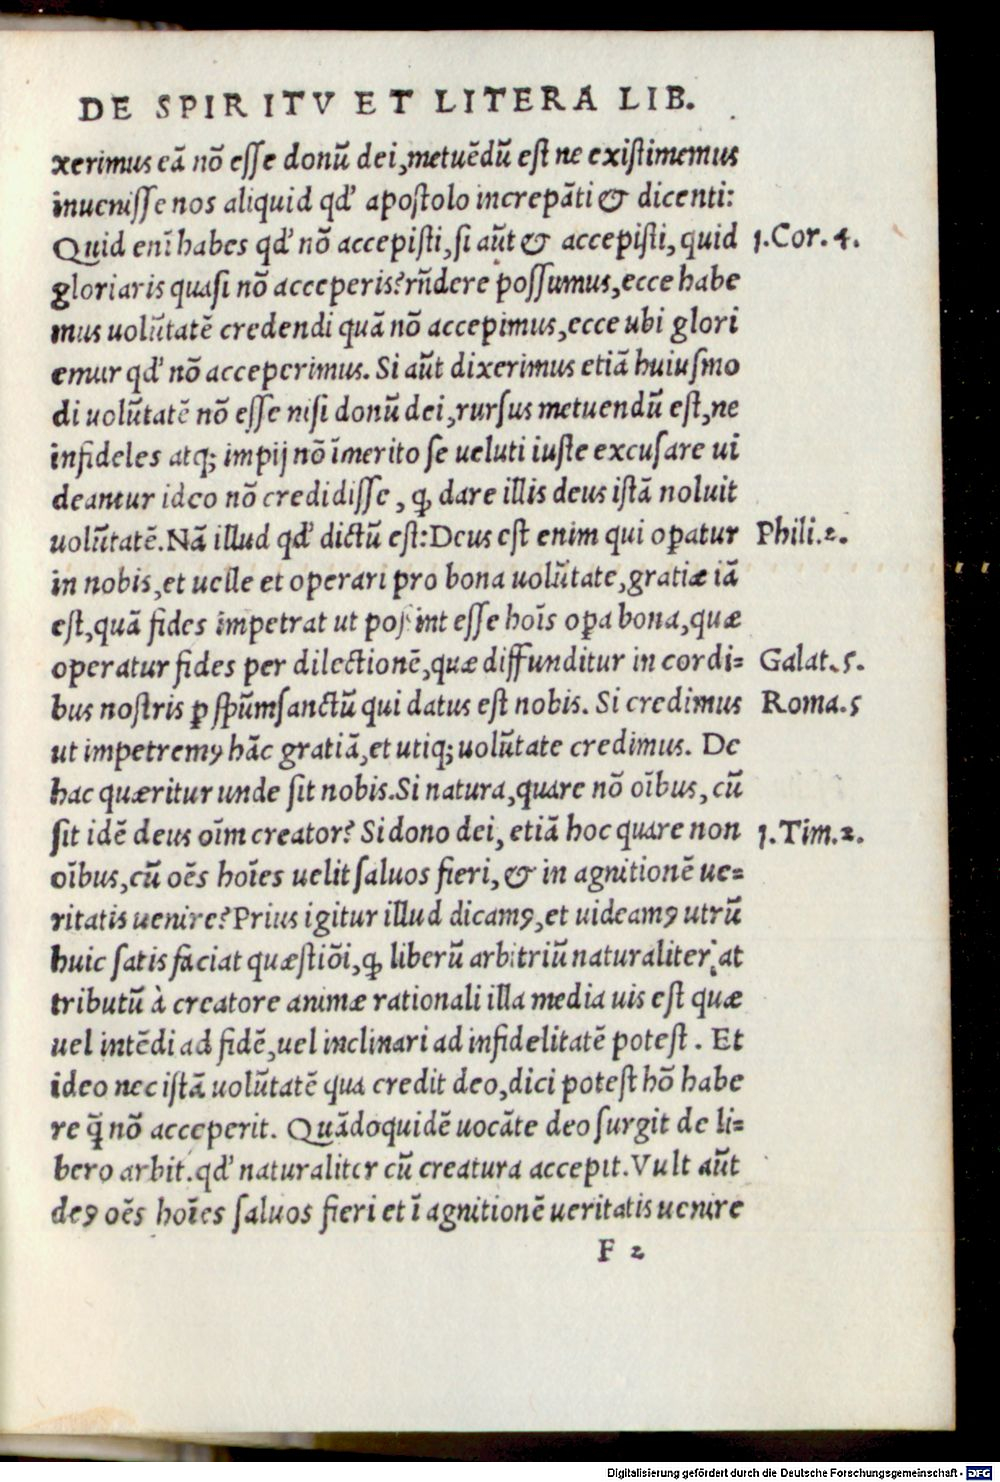 DE SPIRITV ET LITERA LIB.
xerimus eã nõ esse donũ dei, metuẽdũ est ne existimemus
inuenisse nos aliquid qđ apostolo increpãti & dicenti:
Quid enĩ habes qđ nõ accepisti, si aũt & accepisti, quid
1.Cor.4.
gloriaris quasi nõ acceperis? rñdere possumus, ecce habe
mus uolũtatẽ credendi quã nõ accepimus, ecce ubi glori
emur qđ nõ acceperimus. Si aũt dixerimus etiã huiusmo
di uolũtatẽ nõ esse nisi donũ dei, rursus metuendũ est, ne
infideles atq; impij nõ ĩmerito se ueluti iuste excusare ui
deantur ideo nõ credidisse, ꝙ dare illis deus istã noluit
uolũtatẽ. Nã illud qđ dictũ est: Deus est enim qui oꝑatur
Phili.2.
in nobis, et uelle et operari pro bona uolũtate, gratiæ iã
est, quã fides impetrat ut possint esse hoĩs oꝑa bona, quæ
operatur fides per dilectionẽ, quæ diffunditur in cordi=
Galat.5.
bus nostris ꝑ sp̃umsanctũ qui datus est nobis. Si credimus
Roma.5
ut impetremꝰ hãc gratiã, et utiq; uolũtate credimus. De
hac quæritur unde sit nobis. Si natura, quare nõ oĩbus, cũ
sit idẽ deus oĩm creator? Si dono dei, etiã hoc quare non
1.Tim.2.
oĩbus, cũ oẽs hoĩes uelit saluos fieri, & in agnitionẽ ue=
ritatis uenire? Prius igitur illud dicamꝰ, et uideamꝰ utrũ
huic satis faciat quæstiõi, ꝙ liberũ arbitriũ naturaliter at
tributũ à creatore animæ rationali illa media uis est quæ
uel intẽdi ad fidẽ, uel inclinari ad infidelitatẽ potest. Et
ideo nec istã uolũtatẽ qua credit deo, dici potest hõ habe
re q̃ nõ acceperit. Quãdoquidẽ uocãte deo surgit de li=
bero arbit. qđ naturaliter cũ creatura accepit. Vult aũt
deꝰ oẽs hoĩes saluos fieri et ĩ agnitionẽ ueritatis uenire
F 2
Digitalisierung gefördert durch die Deutsche Forschungsgemeinschaft - DFG